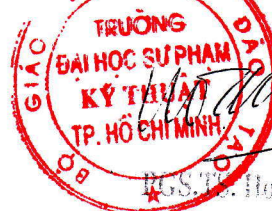 BỘ GIÁO
ĐÀO TẠO
TRƯỜNG
ĐẠI HỌC SƯ PHẠM
KỸ THUẬT
TP. HỒ CHÍ MINH
PGS.TS.